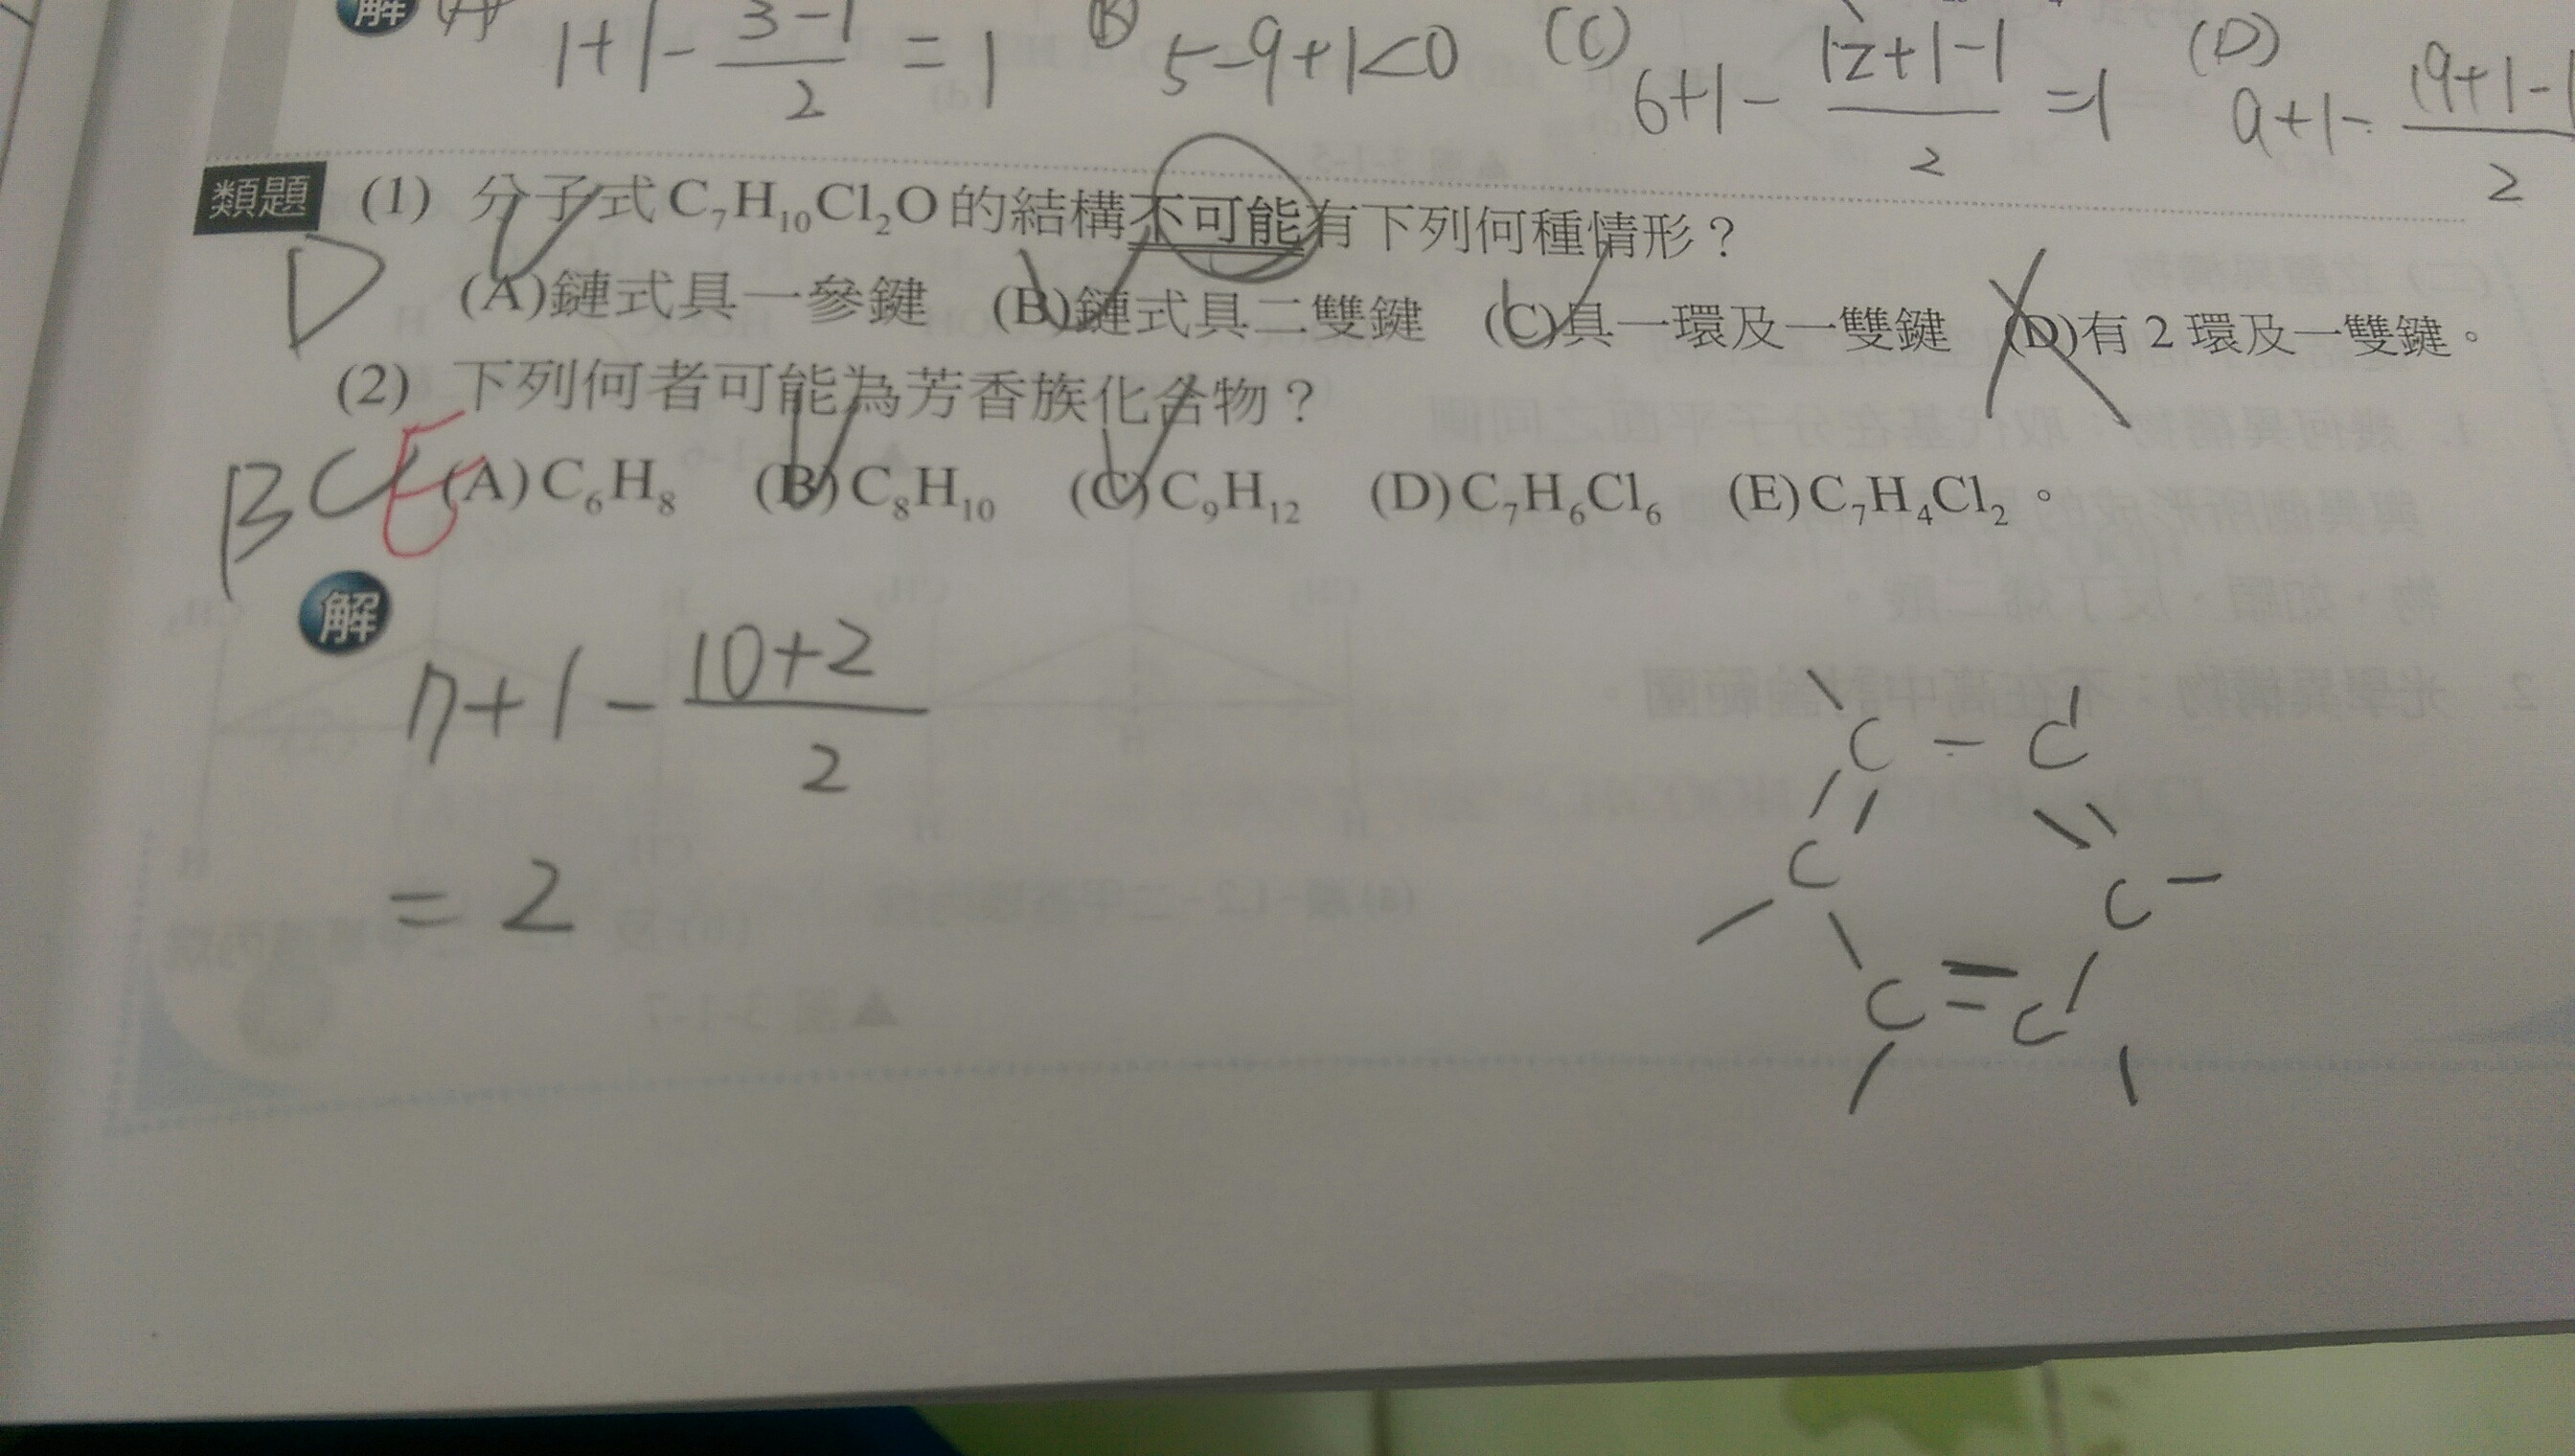 解 (A) 1+1-\frac{3-1}{2}=1 (B) 5-9+1<0 (C) 6+1-\frac{12+1-1}{2}=1 (D) 9+1-\frac{19+1-1}{2}
類題 (1) 分子式C₇H₁₀Cl₂O的結構不可能有下列何種情形？
D
(A)鏈式具一參鍵 (B)鏈式具二雙鍵 (C)具一環及一雙鍵 (D)有2環及一雙鍵。
(2) 下列何者可能為芳香族化合物？
BCE
(A)C₆H₈ (B)C₈H₁₀ (C)C₉H₁₂ (D)C₇H₆Cl₆ (E)C₇H₄Cl₂。
解
7+1-\frac{10+2}{2}
=2
C-C
C C
C=C